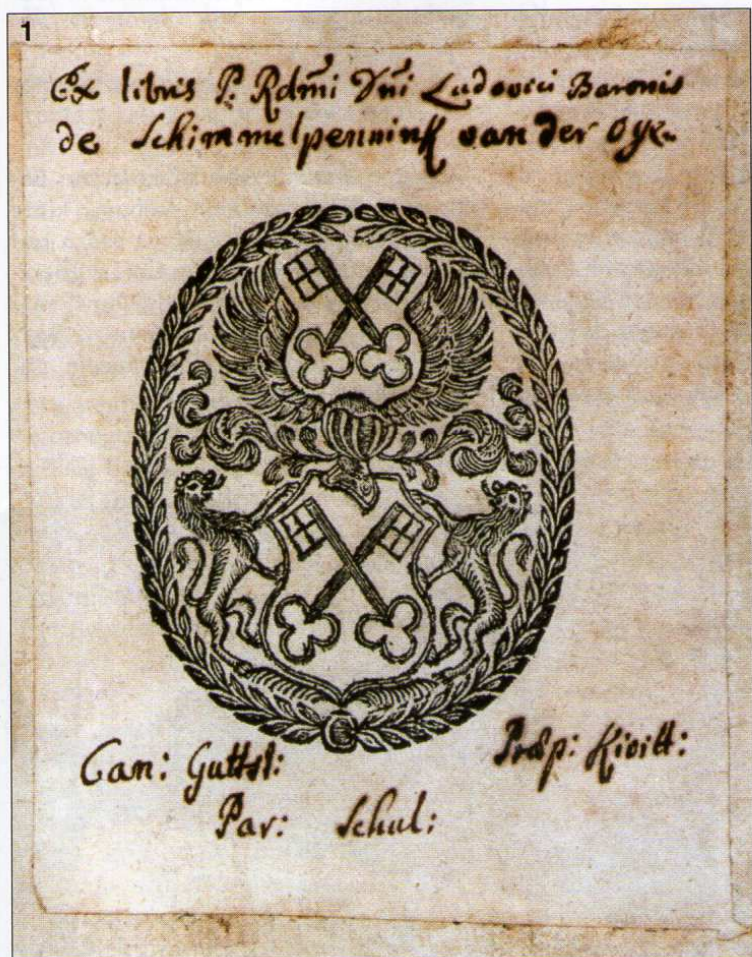 1
Ex libris P: Rdm̃i Dñi Ludovici Baronis
de Schimmelpennink van der Oye
Can: Guttst:
Præp: Kivitt:
Par: Schul: